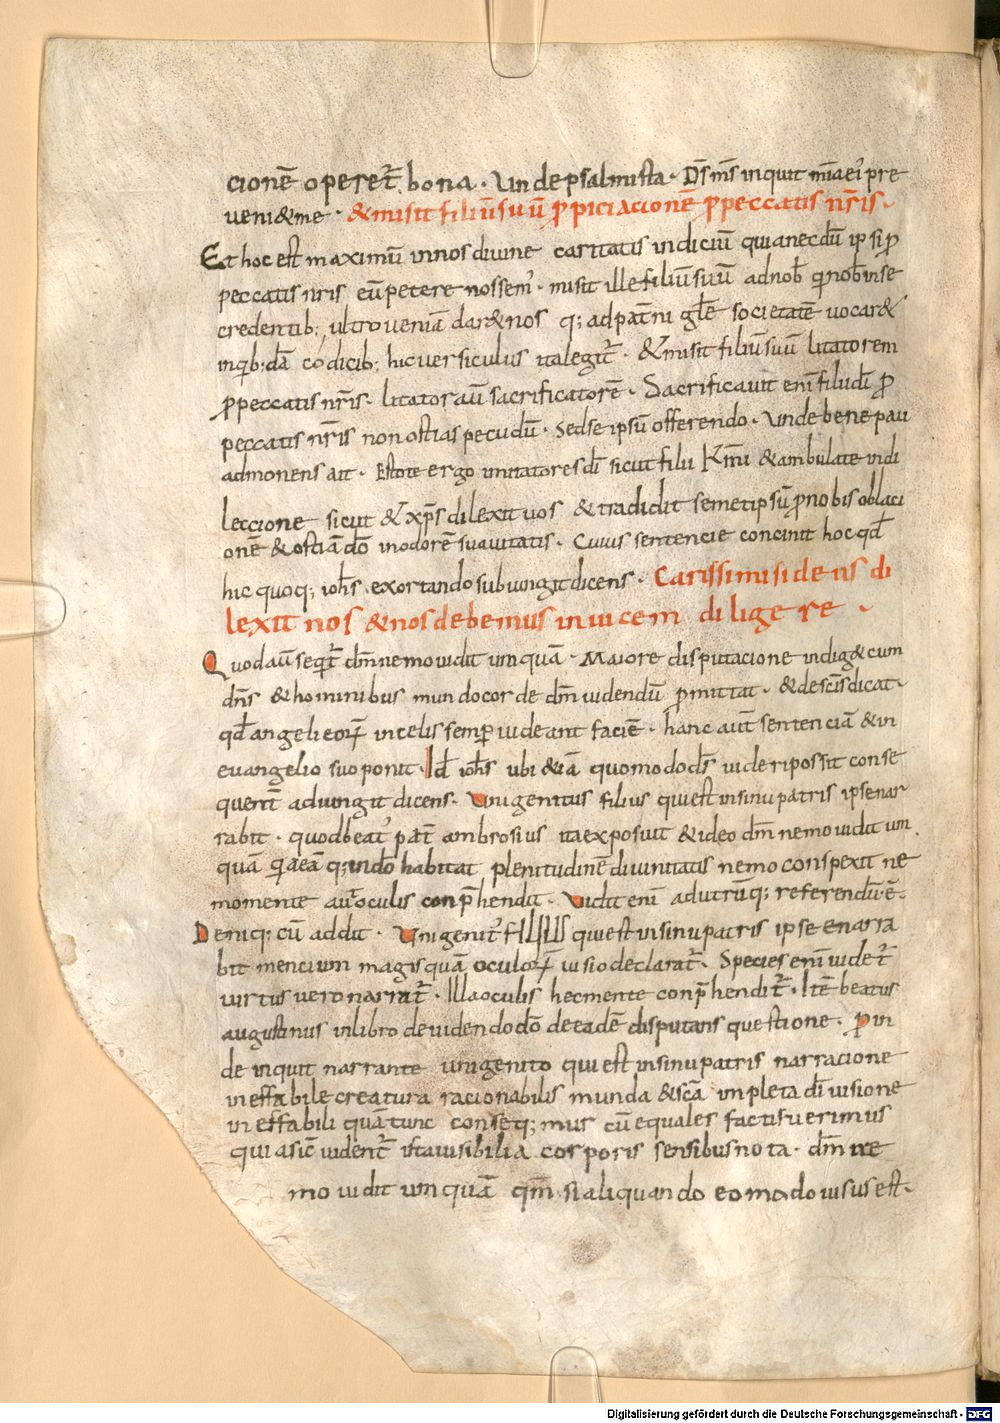 cionē operet̄ bona. Unde psalmista. Ds̄ ms̄ inquit mīa ei' pre
ueni& me. & misit filiū suū ꝓpiciacionē ꝓ peccatis nr̄is.
Et hoc est maximū in nos diuine caritatis indiciū quia necdū ipsi ꝓ
peccatis nr̄is eū petere nossem'. misit ille filiū suū ad nob̄ qui nob̄ in se
credentib; ultro ueniā dar& nos q; ad pat̄ni gl̄e societatē uocar&
in quib; dā codicib; hic uersiculus ita legit̄. & misit filiū suū litatorem
ꝓ peccatis nr̄is. litator aū sacrificatorē. Sacrificauit eni filiū dī ꝓ
peccatis nr̄is non ostias pecudū. Sed se ipsū offerendo. Unde bene pau
admonens ait. Estote ergo imitatores dī sicut filii Km̄i & ambulate in di
leccione sicut & xp̄s dilexit uos & tradidit semetipsū ꝓ nobis oblaci
onē & ostiā dō in odorē suauitatis. Cuius sentencie concinit hoc qd̄
hic quoq; ioh̄s exortando subiungit dicens. Carissimi si de ns di
lexit nos & nos debemus inuicem diligere.
Quod aū seqt̄ dm̄ nemo uidit umquā. Maiore disputacione indig& cum
dn̄s & hominibus mundo corde dm̄ uidendū ꝓmittat. & de sc̄is dicat.
qd̄ angeli eoꝝ in celis semꝑ uideant faciē. hanc aut̄ sentenciā & in
euangelio suo ponit. Id̄ ioh̄s ubi &iā quomodo ds̄ uideri possit conse
quent̄ adiungit dicens. Unigenitus filius qui est in sinu patris ipse nar
rabit. quod beat' pat̄ ambrosius ita exposuit & ideo dm̄ nemo uidit um
quā qia eā q; in dō habitat plenitudinē diuinitatis nemo conspexit ne
mo mente aut oculis conp̄hendit. Uidit eni ad utrūq; referendū ē.
Deniq; cū addit. Unigenit' FILIUS qui est in sinu patris ipse enarra
bit mencium magis quā oculoꝝ uisio declarat̄. Species eni uidet̄
uirtus uero narrat̄. Illa oculis hec mente conp̄hendit̄. Itē beatus
augustinus in libro de uidendo dō de eadē disputans questione. ꝑin
de inquit narrante unigenito qui est in sinu patris narracione
ineffabile creatura racionabilis munda & sc̄a impleta dī uisione
ineffabili quā tunc conseq;mur cū equales factis fuerimus
quia sic̄ uident̄ ista uisibilia corporis sensibus nota. dm̄ ne
mo uidit umquā qm̄ si aliquando eo modo uisus est.
Digitalisierung gefördert durch die Deutsche Forschungsgemeinschaft - DFG